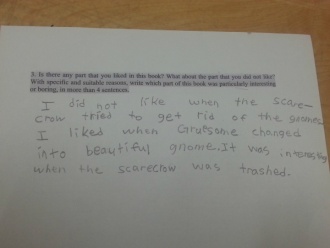 2. Is there any part that you liked in this book? What about the part that you did not like?
With specific and suitable reasons, write which part of this book was particularly interesting
or boring, in more than 4 sentences.
I did not like when the scare-
crow tried to get rid of the gnomes.
I liked when Gruesome changed
into beautiful gnome. It was interesting
when the scarecrow was trashed.